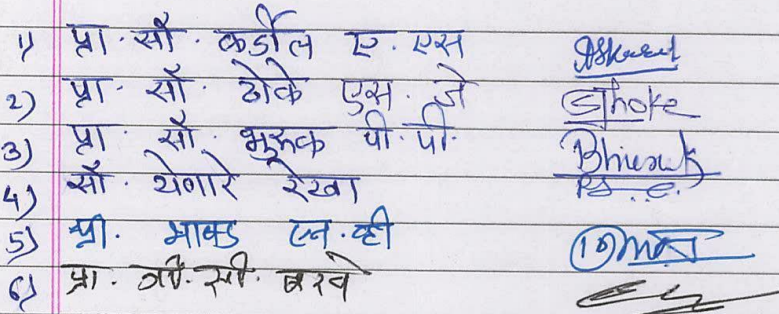 1) प्रा. सौ. कर्डील ए. एस
2) प्रा. सौ. ठोके एस. जे Sthoke
3) प्रा. सौ. भुरुक पी. पी. Bhuruk
4) सौ. येणारे रेखा
5) श्री. भाकड एन. व्ही
6) प्रा. व्ही. सी. बरवे